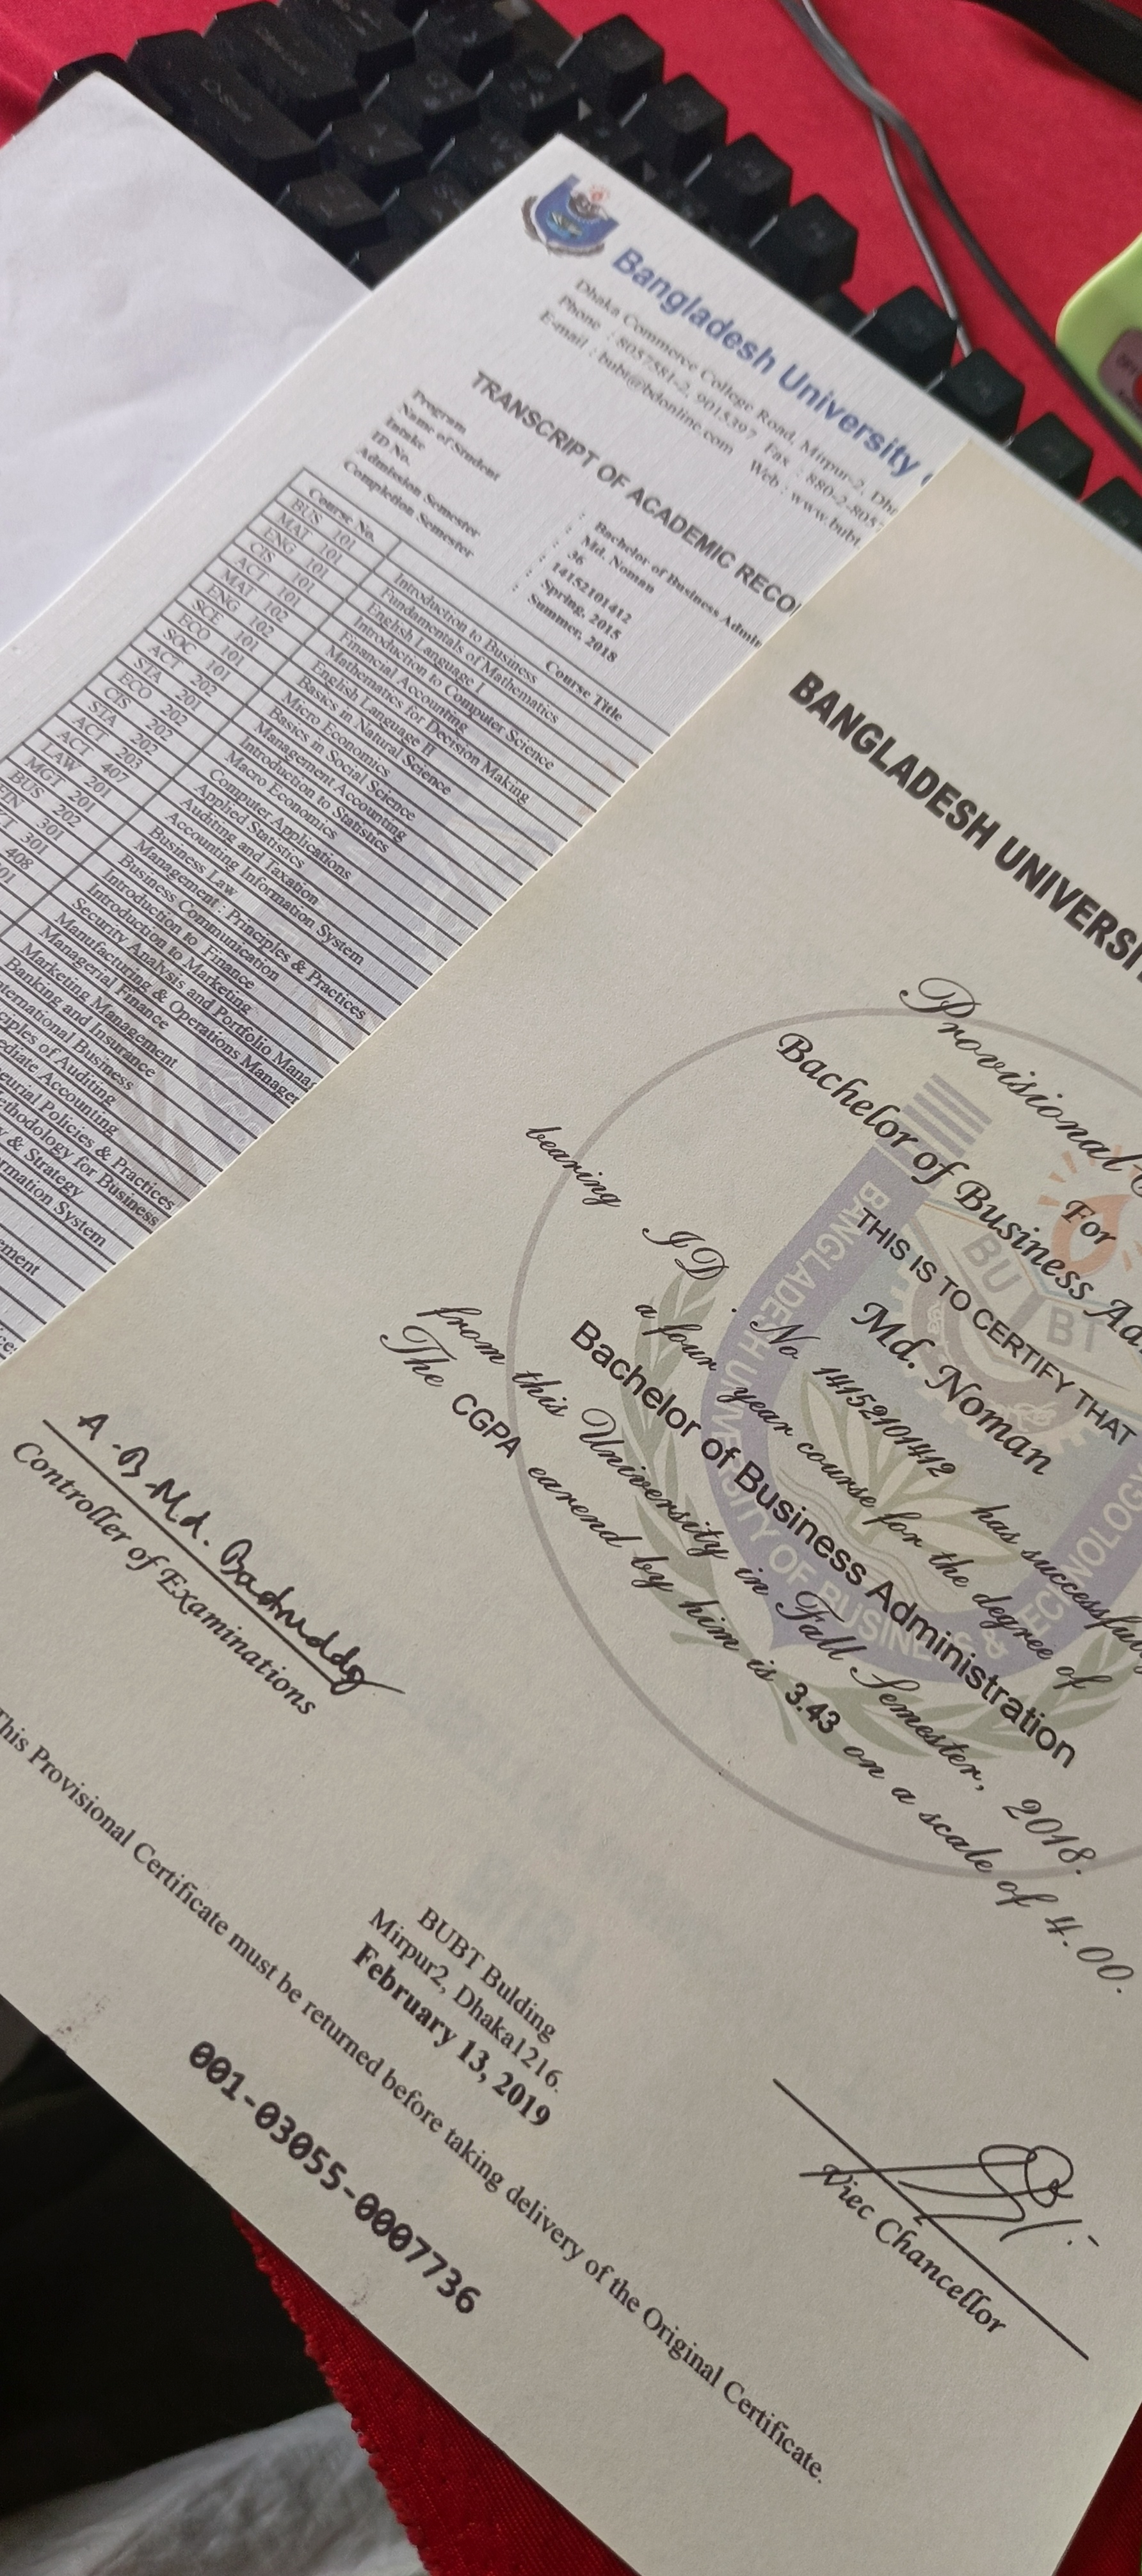 Bangladesh University
Dhaka Commerce College Road, Mirpur-2, Dha
Phone : 8057581-2, 9015397 Fax : 880-2-8057
E-mail : bubt@bdonline.com Web : www.bubt.
TRANSCRIPT OF ACADEMIC RECO
Program : Bachelor of Business Admin
Name of Student : Md. Noman
Intake : 36
ID No. : 14152101412
Admission Semester : Spring, 2015
Completion Semester : Summer, 2018
Course No. Course Title
BUS 101 Introduction to Business
MAT 101 Fundamentals of Mathematics
ENG 101 English Language I
CIS 101 Introduction to Computer Science
ACT 101 Financial Accounting
MAT 102 Mathematics for Decision Making
ENG 102 English Language II
SCE 101 Basics in Natural Science
ECO 101 Micro Economics
SOC 101 Basics in Social Science
ACT 202 Management Accounting
STA 201 Introduction to Statistics
ECO 202 Macro Economics
CIS 202 Computer Applications
STA 202 Applied Statistics
ACT 203 Auditing and Taxation
ACT 407 Accounting Information System
LAW 201 Business Law
MGT 201 Management : Principles & Practices
BUS 202 Business Communication
FIN 301 Introduction to Finance
KT 301 Introduction to Marketing
408 Security Analysis and Portfolio Manag
01 Manufacturing & Operations Manager
Managerial Finance
Marketing Management
Banking and Insurance
nternational Business
ciples of Auditing
ediate Accounting
neurial Policies & Practices
ethodology for Business
y & Strategy
rmation System
ement
BANGLADESH UNIVERSI
Provisional
For
Bachelor of Business Ad
THIS IS TO CERTIFY THAT
Md. Noman
bearing ID. No 14152101412 has successfully
a four year course for the degree of
Bachelor of Business Administration
from this University in Fall Semester, 2018.
The CGPA earend by him is 3.43 on a scale of 4.00.
BANGLADESH UNIVERSITY OF BUSINESS & TECHNOLOGY
BUBT
A.B.Md. Badrudd
Controller of Examinations
BUBT Bulding
Mirpur2, Dhaka1216.
February 13, 2019
Viec Chancellor
This Provisional Certificate must be returned before taking delivery of the Original Certificate.
001-03055-0007736